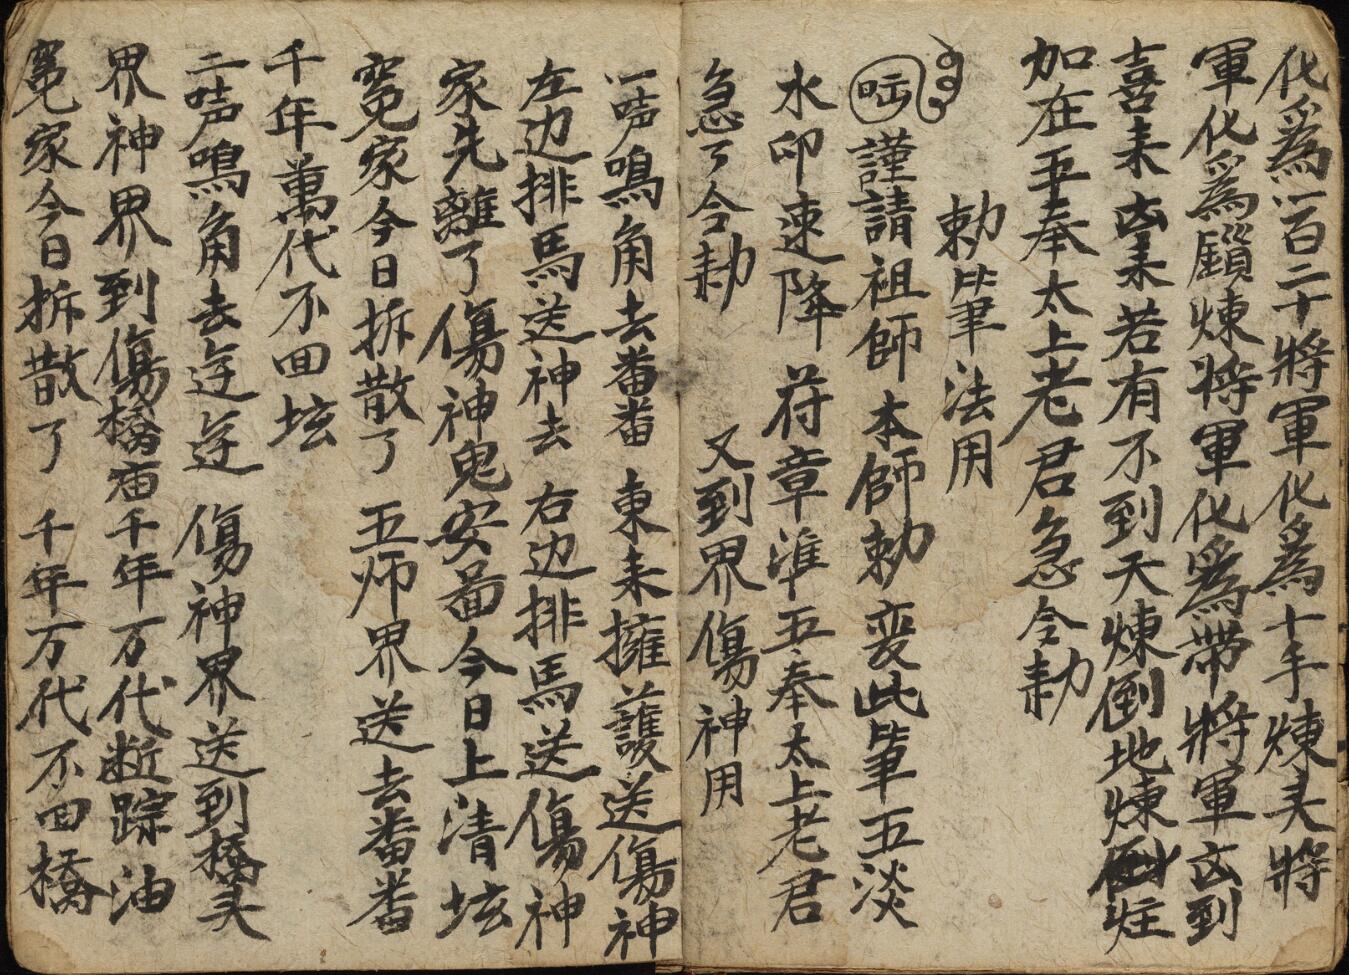 化爲一百二十將軍化爲十手煉夫將
軍化爲鎻煉將軍化爲帶將軍㐫到
喜耒㐫耒若有不到天煉倒地煉
加在平奉太上老君急令勑
勅筆法用
謹請祖師本師勅変此筆五淡
水印速降 苻章準五奉太上老君
急了令勑 又到界傷神用
一哘鳴角去番番 東耒擁護送傷神
左边排馬送神去 右边排馬送傷神
家先離了傷神鬼安啚今日上清坛
寃家今日拆散了 五师界送去番番
千年萬代不回坛
二哘鳴角去迬迬 傷神界送到橋夫
界神界到傷橋庙千年万代断踪油
寃家今日拆散了 千年万代不回橋